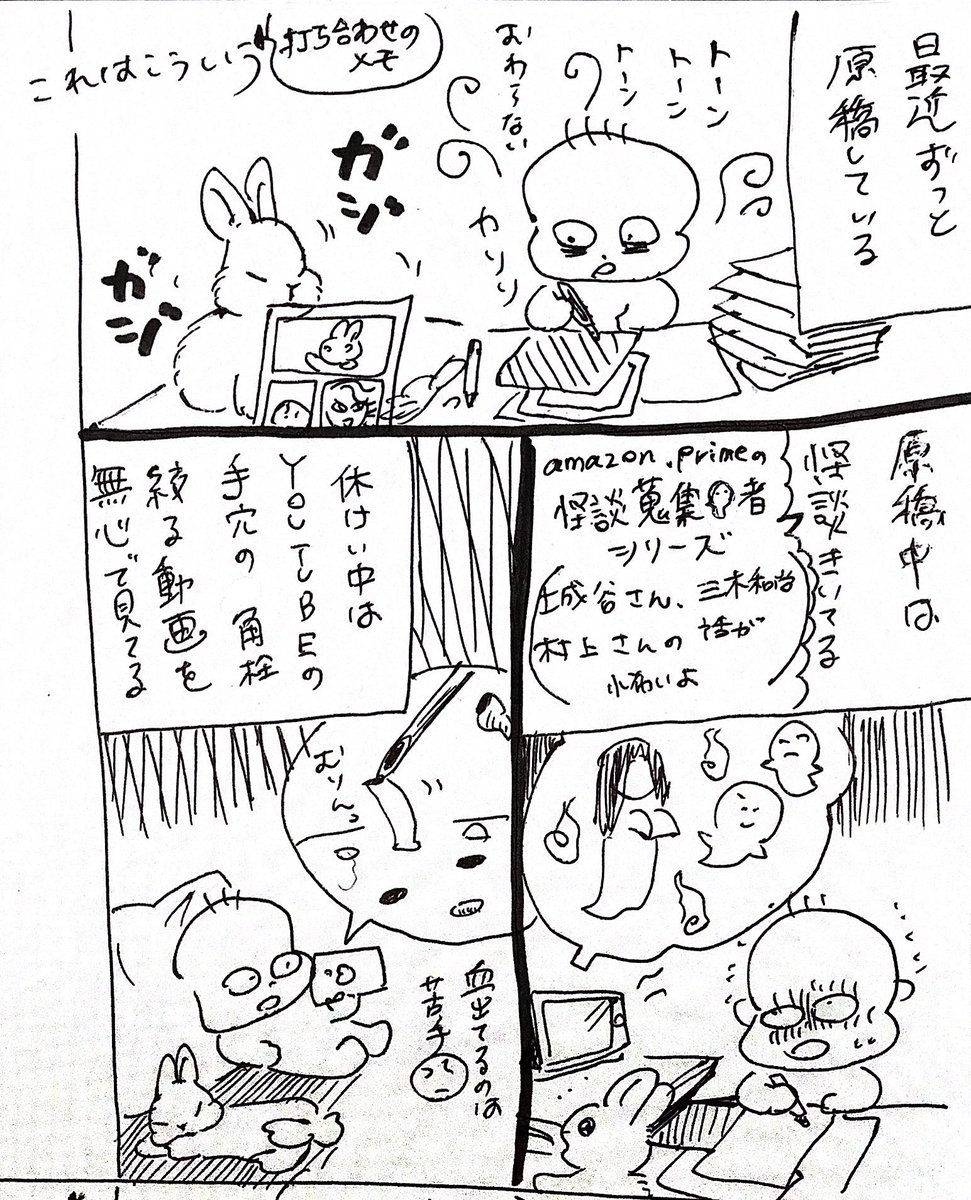 最近ずっと
原稿している
トーン
トーン
トーン
おわらない
カリリ
打ち合わせの
メモ
これはこういう
ガジ
ガジ
原稿中は
怪談きいてる
amazon primeの
怪談蒐集者
シリーズ
城谷さん、三木和尚
村上さんの話が
怖いよ
休けい中は
YOUTUBEの
毛穴の角栓
絞る動画を
無心で見てる
むりんっ
血出てるのは
苦手